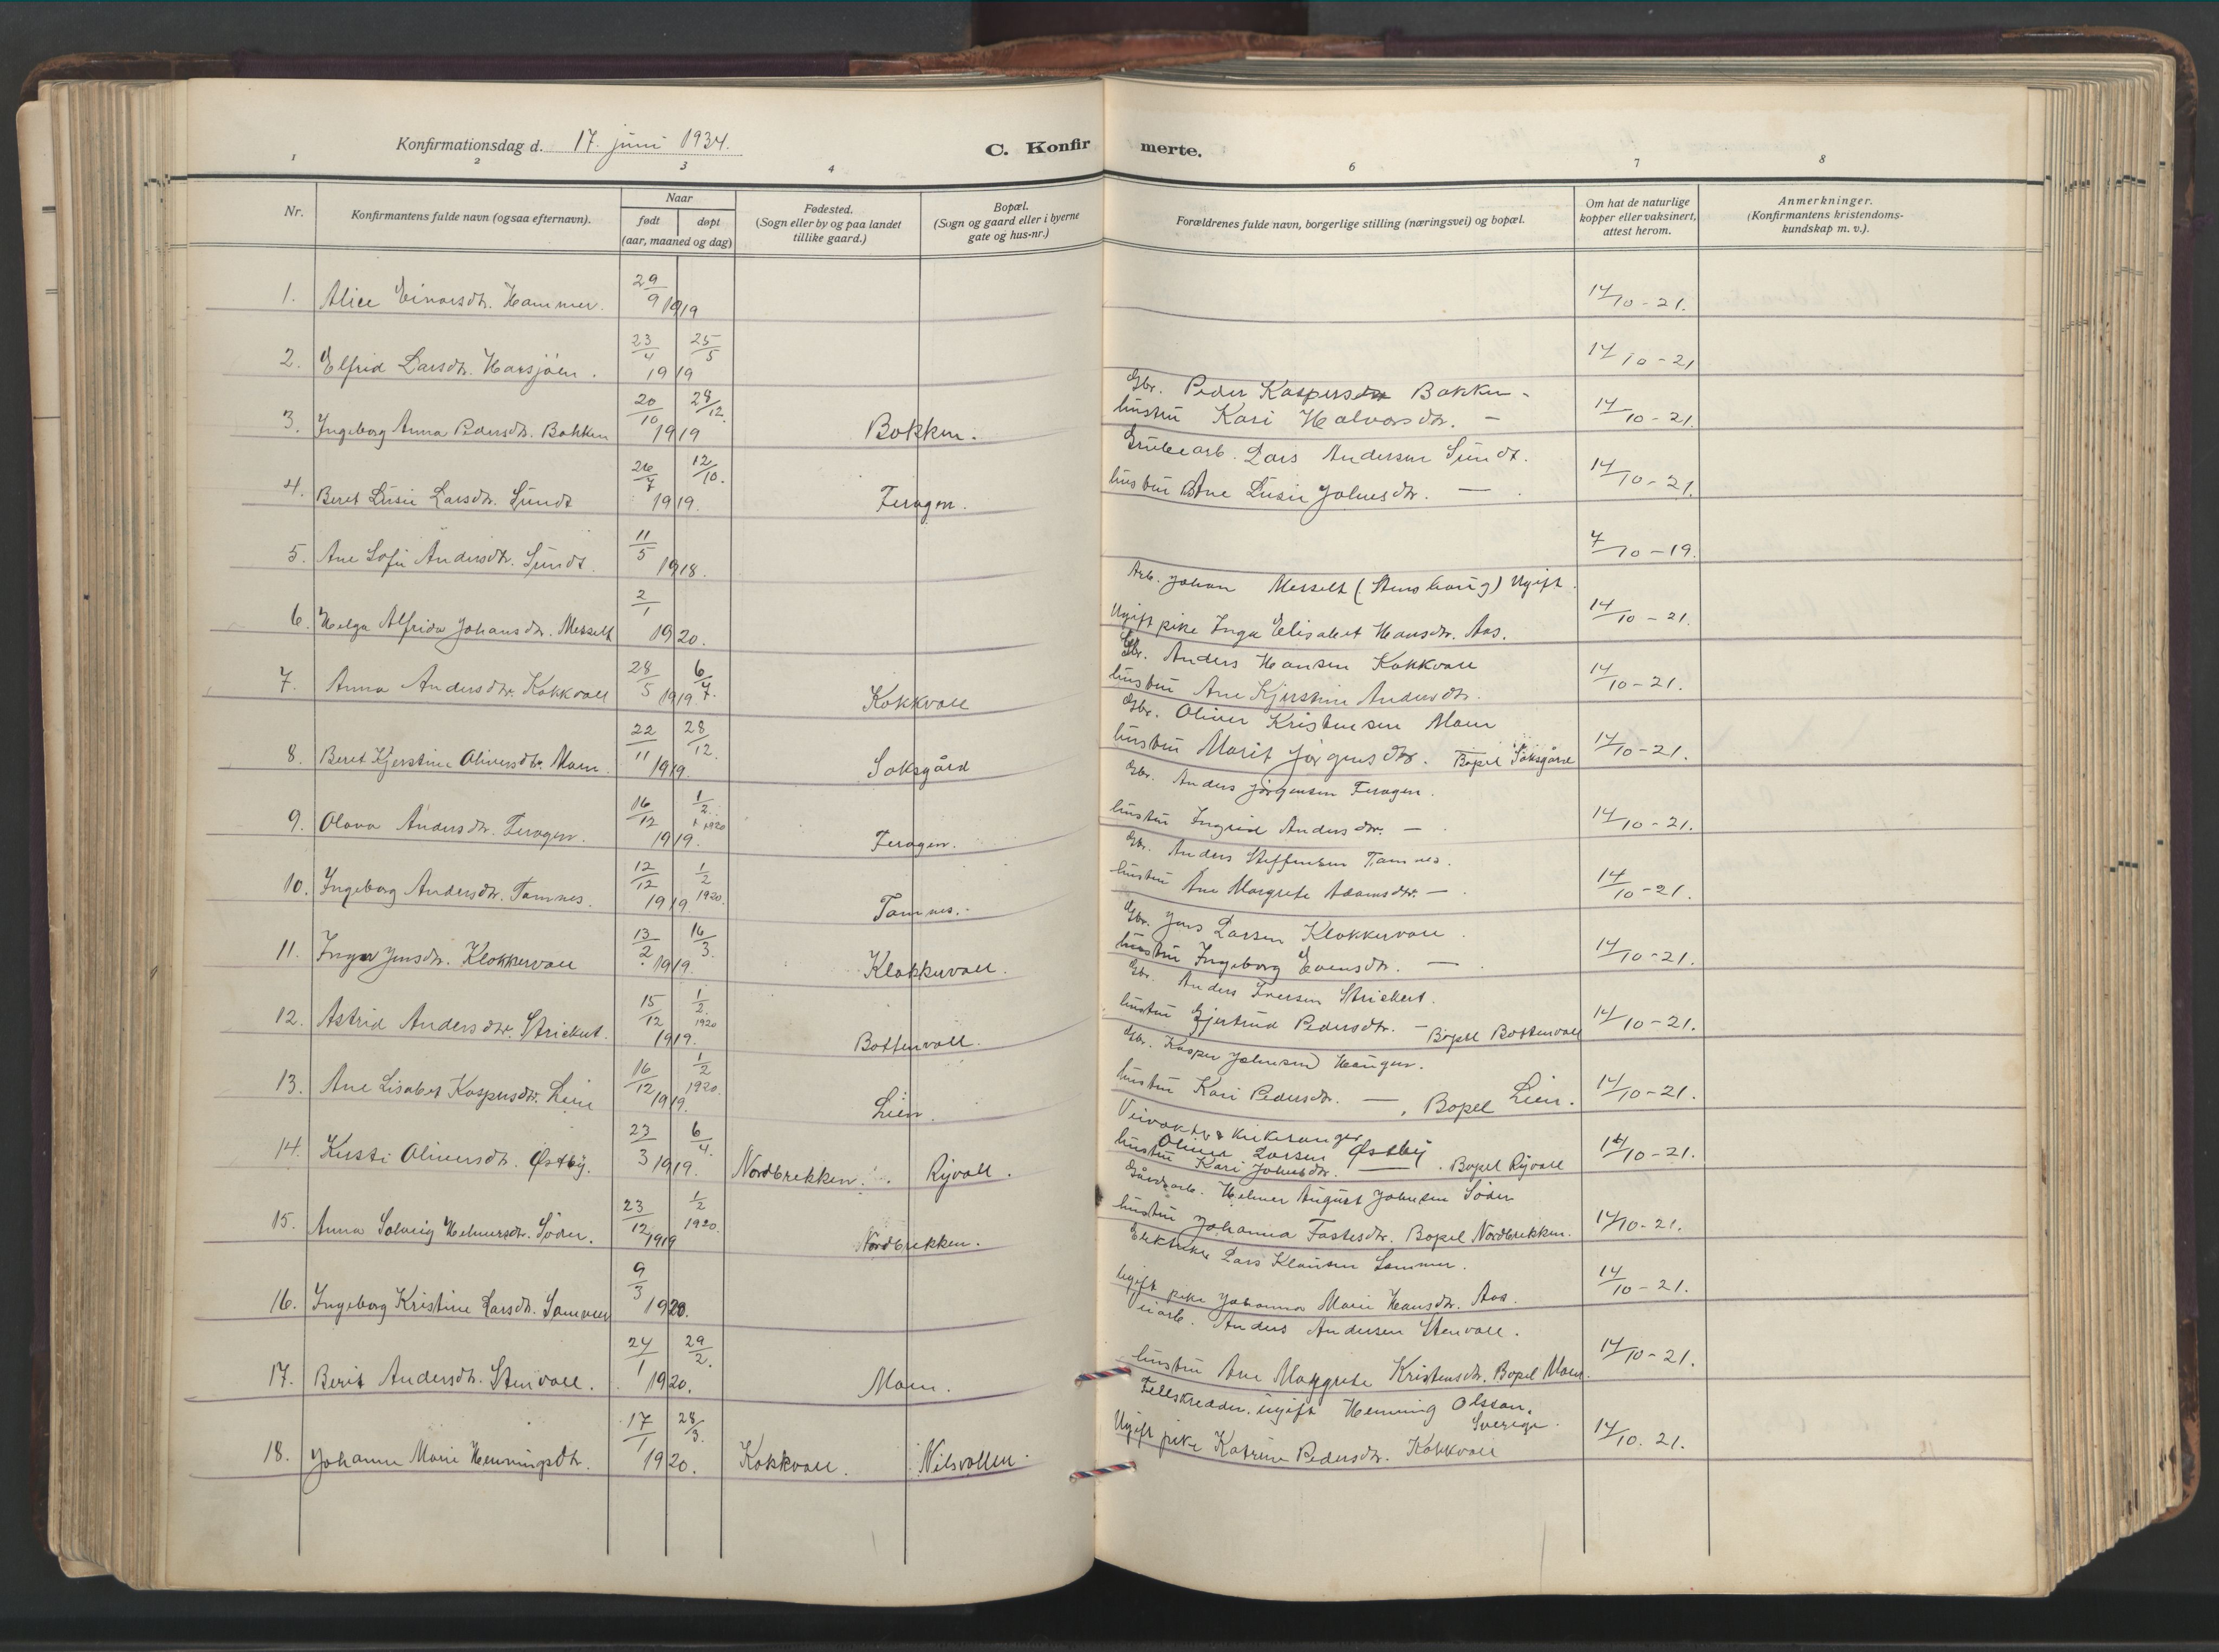 Konfirmationsdag d. 17. juni 1934.
C. Konfirmerte.
1 2 3 4 6 7 8
Nr.
Konfirmantens fulde navn (ogsaa efternavn).
Naar
født døpt
(aar, maaned og dag)
Fødested.
(Sogn eller by og paa landet
tillike gaard.)
Bopæl.
(Sogn og gaard eller i byerne
gate og hus-nr.)
Forældrenes fulde navn, borgerlige stilling (næringsvei) og bopæl.
Om hat de naturlige
kopper eller vaksinert,
attest herom.
Anmerkninger.
(Konfirmantens kristendoms-
kundskap m. v.).
1. Alice Einarsdtr. Hammer. 29/9 1919 14/10-21.
2. Elfrid Larsdtr. Harsjøen. 23/4 1919 25/5 14/10-21
3. Ingeborg Anna Pedersdtr. Bakken 20/10 1919 28/12. Bakken.
Gbr. Peder Kaspersen Bakken -
hustru Kari Halvorsdtr. - 14/10-21.
4. Beret Lusie Larsdtr. Sundt 26/7 1919. 12/10. Feragen.
Grubearb. Lars Andersen Sundt.
hustru Ane Lusie Johnsdtr. — 14/10-21.
5. Ane Sofie Andersdtr. Sundt. 11/5 1918. 7/10-19.
6. Helga Alfrida Johansdtr. Messelt 2/1 1920.
Arb. Johan Messelt (Stenshaug) Ugift.
Ugift pike Inga Elisabet Hansdtr. Aas. 14/10-21.
7. Anna Andersdtr. Kokkvoll 28/5 1919 6/7. Kokkvoll
Gbr. Anders Hansen Kokkvoll
hustru Ane Kjerstine Andersdtr. 14/10-21.
8. Beret Kjerstine Oliversdtr. Moen. 22/11 1919. 28/12. Saksgård
Gbr. Oliver Kristensen Moen
hustru Marit Jørgensdtr. Bopel Saksgård 14/10-21.
9. Olava Andersdtr. Feragen. 16/12 1919. 1/2. 1920 Feragen.
Gbr. Anders Jørgensen Feragen.
hustru Ingrid Andersdtr. — 14/10-21.
10. Ingeborg Andersdtr. Tamnes. 12/12 1919 1/2 1920. Tamnes.
Gbr. Anders Steffensen Tamnes.
hustru Ane Margrete Adamsdtr. — 14/10-21.
11. Inga Jensdtr. Klokkervoll 13/2 1919. 16/3. Klokkervoll.
Gbr. Jens Larsen Klokkervoll.
hustru Ingeborg Evensdtr. — 14/10-21.
12. Astrid Andersdtr. Strickert. 15/12 1919. 1/2. 1920 Bottenvoll.
Gbr. Anders Iversen Strickert.
hustru Gjertrud Pedersdtr. — Bopel Bottenvoll 14/10-21.
13. Ane Lisabet Kaspersdtr. Lien 16/12 1919. 1/2 1920. Lien.
Gbr. Kasper Johnsen Haugen.
hustru Kari Pedersdtr. —, Bopel Lien. 14/10-21.
14. Kirsti Oliversdtr. Østby. 23/3 1919. 6/4. Nordbrekken. Ryvoll.
Veivokter & kirkesanger
Oliver Larsen Østby
hustru Kari Johnsdtr. — . Bopel Ryvoll 14/10-21.
15. Anna Solveig Helmersdtr. Söder. 23/12 1919 1/2 1920. Nordbrekken.
Gårdsarb. Helmer August Johnsen Söder
hustru Johanna Fastesdtr. Bopel Nordbrekken. 14/10-21.
16. Ingeborg Kristine Larsdtr. Sommer 9/3 1920.
Elektriker Lars Klausen Sommer.
Ugift pike Johanna Marie Hansdtr. Aas. 14/10-21.
17. Berit Andersdtr. Stenvoll. 24/1 1920. 29/2. Moen.
Veiarb. Anders Andersen Stenvoll.
hustru Ane Margrete Kristensdtr. Bopel Moen. 14/10-21.
18. Johanne Marie Henningsdtr. 17/1 1920. 28/3. Kokkvoll. Nilsvollen.
Fellskredder. ugift Henning Olsson.
Sverige.
Ugift pike Katrine Pedersdtr. Kokkvoll 14/10. 21.